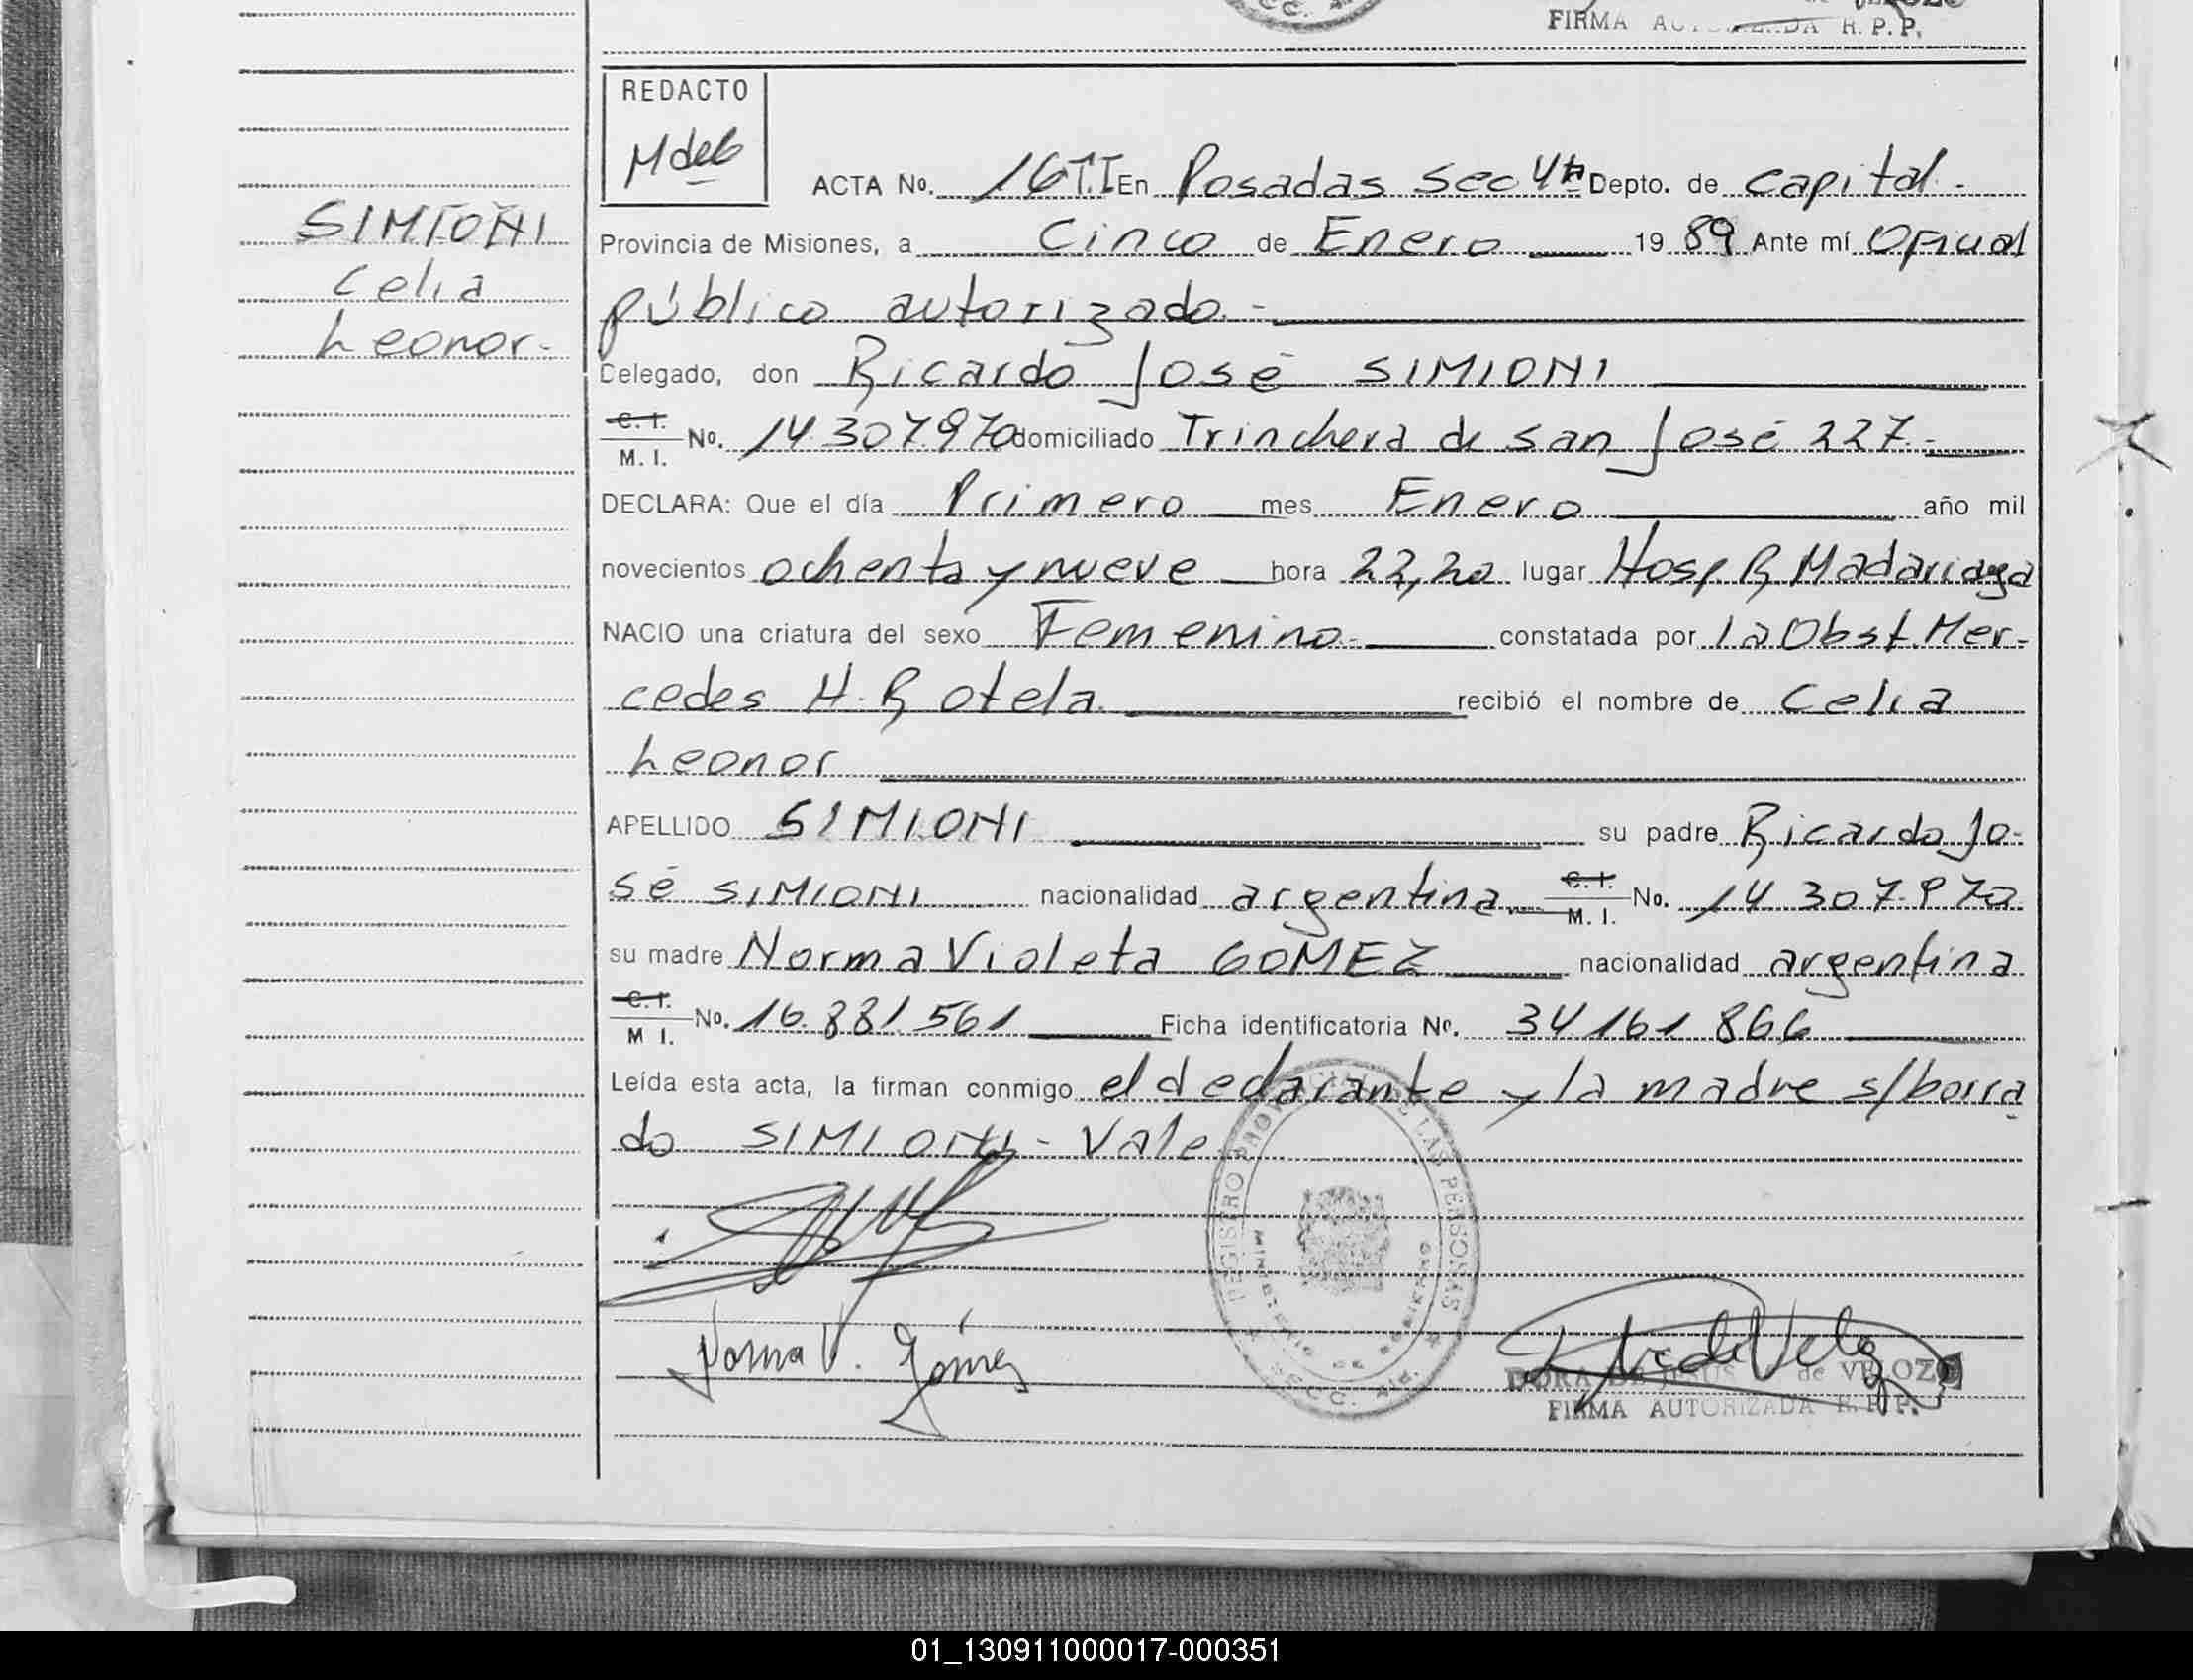 FIRMA AUTORIZADA R.P.P.
REDACTO
ACTA No. 16 T.I En Posadas Sec 4ta Depto. de Capital.-
SIMIONI
Celia
Leonor.-
Provincia de Misiones, a Cinco de Enero 19 89 Ante mí Oficial
público autorizado.-
Delegado, don Ricardo José SIMIONI
C.I. M.I. No. 14.307.970 domiciliado Trinchera de San José 227.-
DECLARA: Que el día Primero mes Enero año mil
novecientos ochenta y nueve hora 22,20 lugar Hosp R Madariaga
NACIO una criatura del sexo Femenino.- constatada por la Obst. Mer-
cedes H. Rotela. recibió el nombre de Celia
Leonor
APELLIDO SIMIONI su padre Ricardo Jo-
sé SIMIONI nacionalidad argentina. C.I. M.I. No. 14 307.970
su madre Norma Violeta GOMEZ nacionalidad argentina
C.I. M I. No. 16.881.561 Ficha identificatoria No. 34 161 866
Leída esta acta, la firman conmigo el declarante y la madre s/borra
do SIMIONI - Vale
REGISTRO PROVINCIAL DE LAS PERSONAS
MINISTERIO DE GOBIERNO
SECC. 4ta.
Norma V. Gómez
DORA DE JESUS de VELOZO
FIRMA AUTORIZADA R.P.P.
01_130911000017-000351